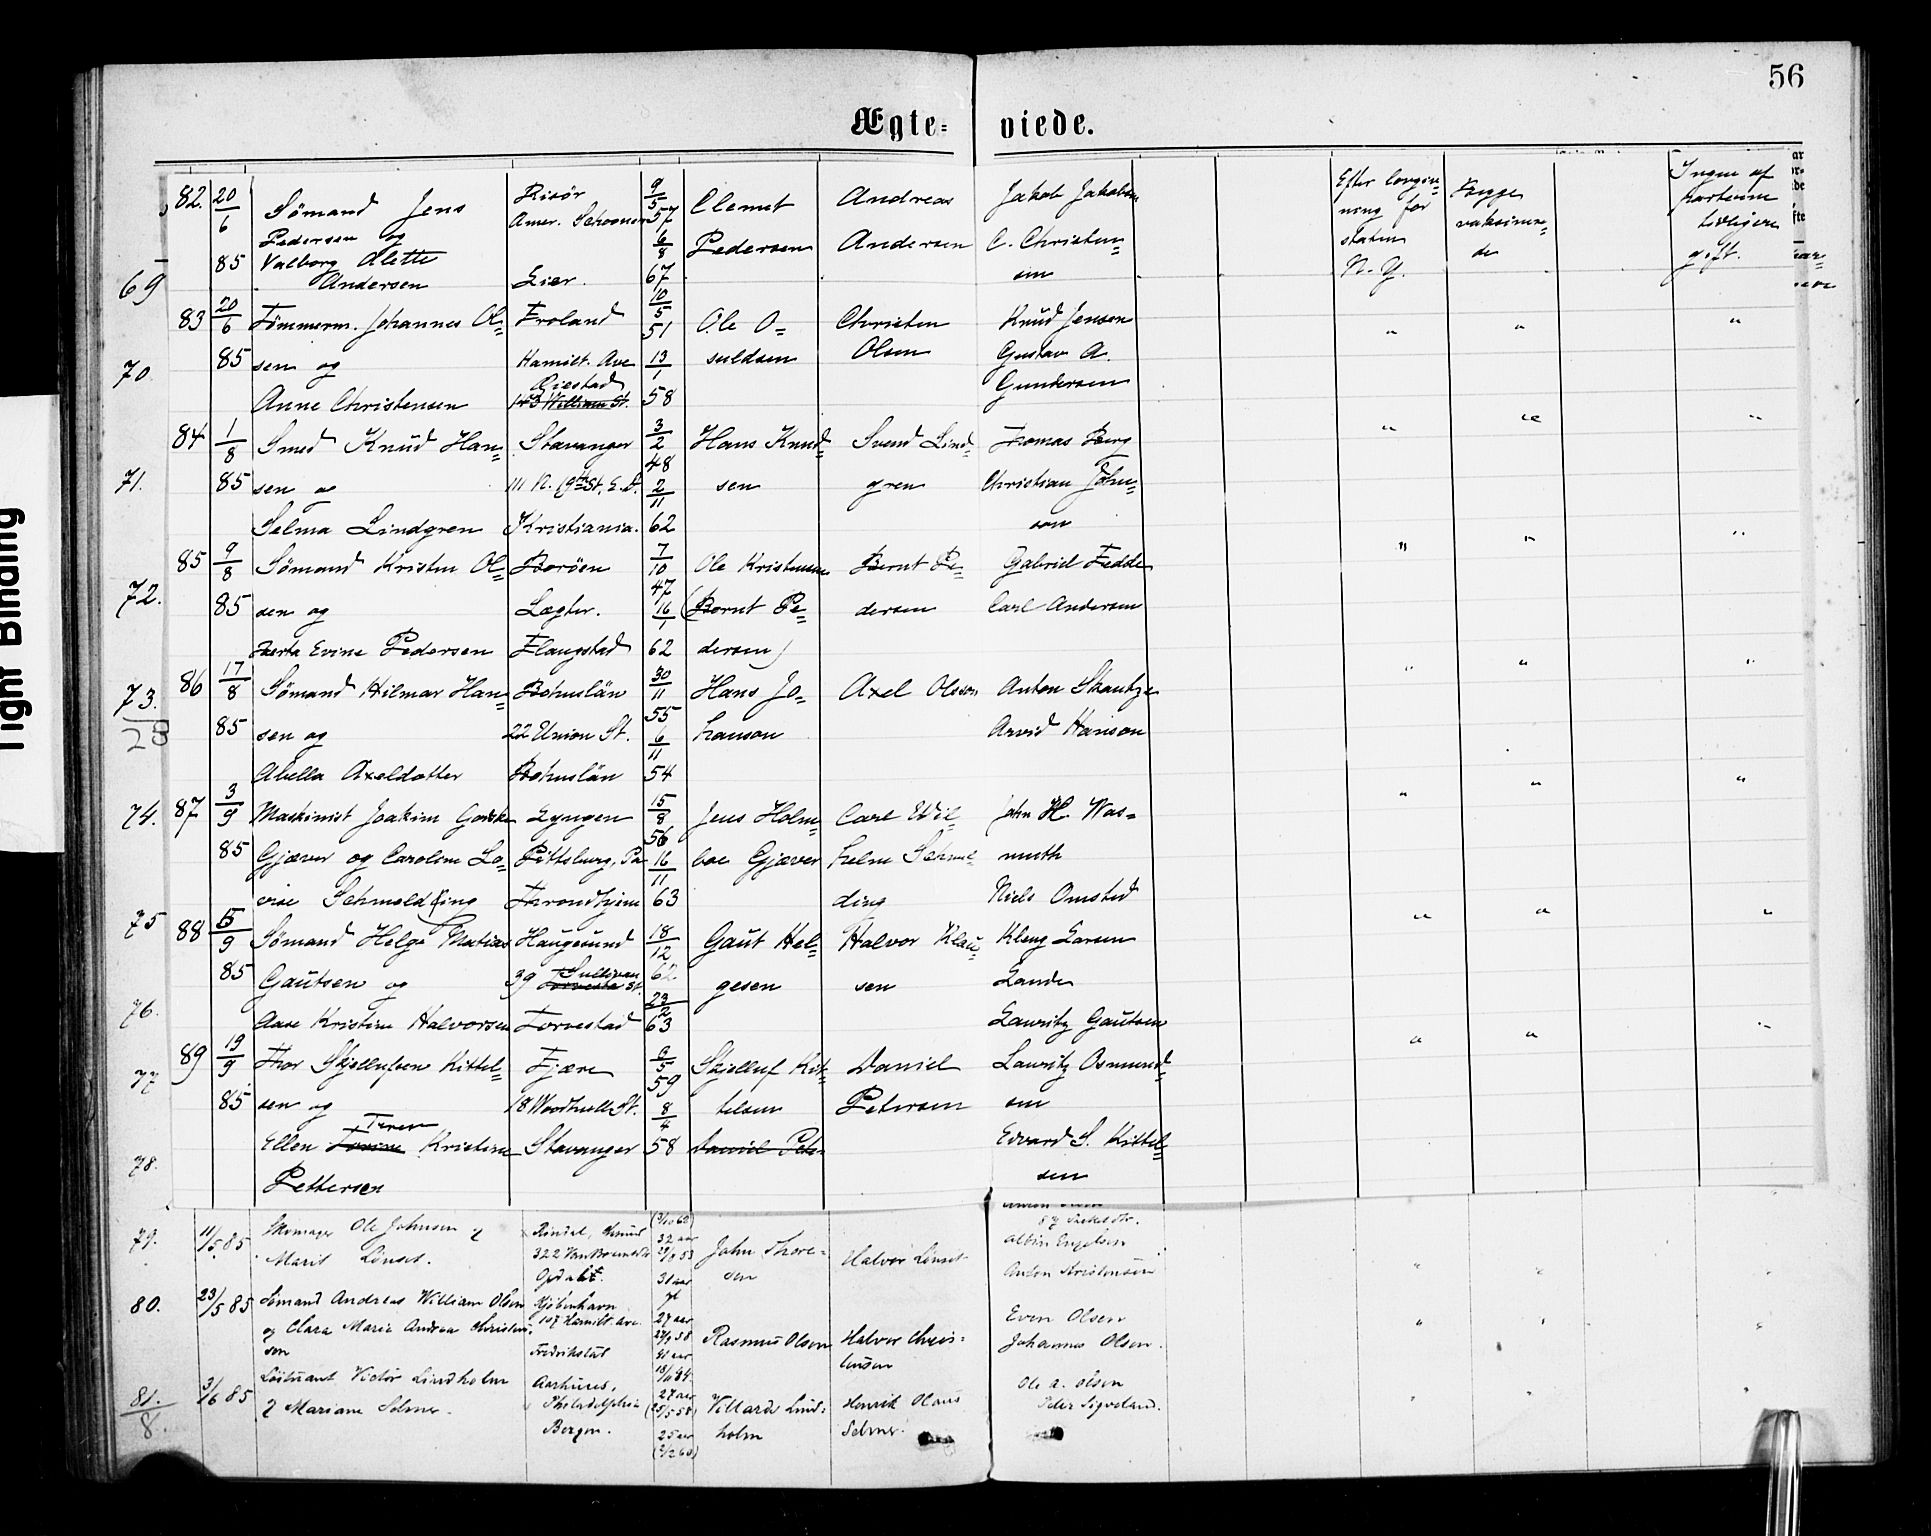 56
Ægte= viede.
82. 20/6 85 Sömand Jens Pedersen og Valborg Alette Andersen
Risör Amer. Schooner Lier.
9/5 57 6/8 67
Clemet Pedersen
Andreas Andersen
Jakob Jakobsen C. Christensen
Efter lovgivning for staten N.Y.
Begge vaksinerede
Ingen af parterne tidligere gift.
69
83 20/6 85 Tömmerm. Johannes Ol= sen og Anne Christensen
Froland Hamilt. Ave
143 William St.
10/5 51 13/1 58
Ole O=
Christen Olsen
Knud Jensen Gustav A. Gundersen
" " "
70.
84 1/8 85 Smed Knud Han= sen og Selma Lindgren
Stavanger 111 N. 9th St. E.D. Kristiania.
3/2 48 2/11 62
Hans Knud= sen
Svend Lind= gren
Thomas Berg Christian John= son
" " "
71.
85 9/8 85 Sömand Kristen Ol= sen og Berta Evine Pedersen
Boröen Lægter. Flaugstad
7/10 47 16/1 62
Ole Kristensen (Bernt Pe= dersen)
Bernt Pe= dersen
Gabriel Fedde Carl Andersen
" " "
72.
86 17/8 85 Sömand Hilmar Han= sen og Abella Axeldotter
Bohuslän 22 Union St. Bohuslän
30/11 55 6/11 54
Hans Jo= hanson
Axel Olsson
Anton Skantze Arvid Hanson
" " "
73.
28
87 3/9 85 Maskinist Joakim Godske Gjæver og Caroline Lo= vise Schmeld(ing
Lyngen Pittsburg, Pa Throndhjem
15/8 56 16/11 63
Jens Holm= boe Gjæver
Carl Wil= helm Schmel= ding
John H. Was= muth Niels Omsted
" " "
74.
88 5/9 85 Sömand Helge Matias Gautsen og Aase Kristine Halvorsen
Haugesund 39 Sullivan St. Torvestad
18/12 62. 23/2 63
Gaut Hel= gesen
Halvor Klau= sen
Kleng Larsen Lande Lauritz Gautsen
" " "
75
76.
89 19/9 85 Thor Skjellufsen Kittel= sen og Ellen Teren Kristine Pettersen
Fjære 18 Woodhull St. Stavanger
9/5 59 8/4 58
Skjelluf Kit= telsen
Daniel Petersen
Lauritz Osmund= sen Edvard S. Kittel= sen
" " "
77
78.
79. 11/5 85 Skomager Ole Johnsen og Marit Lönset.
322 Van Brunt St. Opdal
32 aar 31 aar
John Thore= sen
Halvor Lönset
Albin Engelsen Anton Kristensen
" " "
80. 23/5 85 Sömand Andreas William Olsen og Clara Marie Andrea Christen= sen
Kjöbenhavn 107 Hamilt. Ave. Fredrikstad
27 aar
Rasmus Olsen
Halvor Chris= tensen
Even Olsen Johannes Olsen.
" " "
81. 3/6 85 Löitnant Victor Lindholm og Mariane Selmer.
Aarhuus, Philadelphia Bergen.
27 aar (25/5 58) 25 aar (2/2 60)
Villards Lind= holm
Henrik Claus Selmer.
Ole A. Olsen Peder Sigveland.
" " "
8.
Tight Binding